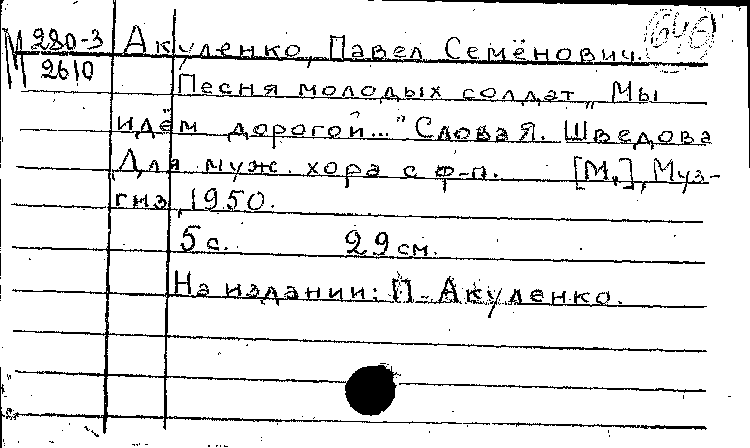 М 280-3 Акуленко, Павел Семёнович. 646
2610
Песня молодых солдат „Мы
идём дорогой..." Слова Я. Шведова
Для муж. хора с ф-п. [М.], Муз-
гиз, 1950.
5 с. 29 см.
На издании: П. Акуленко.